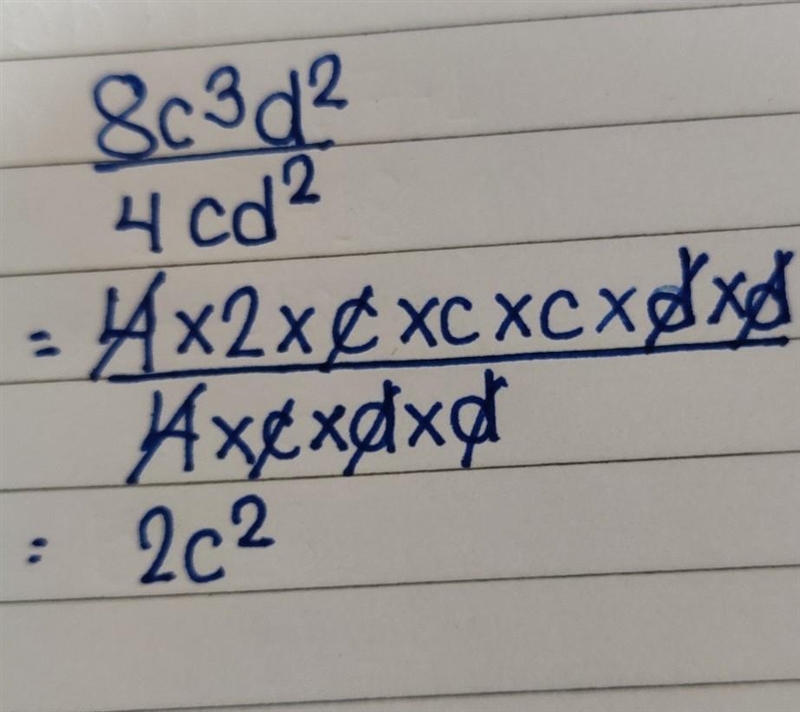 8c³d²
4cd²
= 4×2×c×c×c×d×d
4×c×d×d
= 2c²